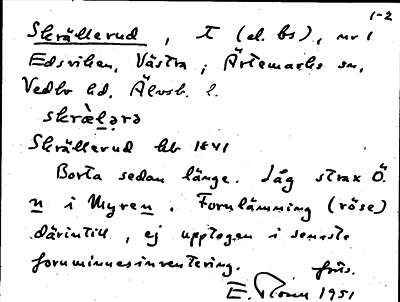 1-2
Skrällerud, T (el. bs), nr 1
Edsviken, Västra; Ärtemarks sn,
Vedbo hd, Älvsb. l.
skrä̀ḷərə
Skrällerud hb 1841
Borta sedan länge. Låg strax Ö.
n i Myren. Fornlämning (röse)
därintill, ej upptagen i senaste
fornminnesinventering.
E. 1951